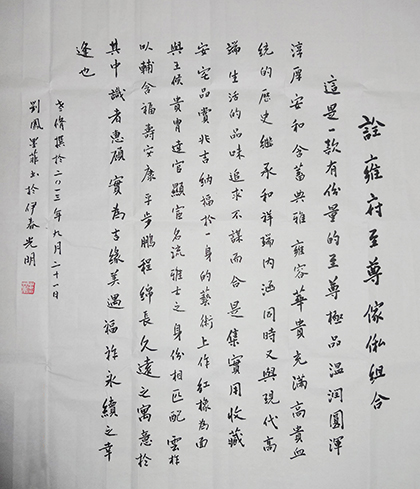 詮雍府至尊傢俬組合
這是一款有份量的至尊極品温润圓渾
淳厚安和含蓄典雅雍容華貴充滿高貴血
統的歷史繼承和祥瑞内涵同時又與現代高
端生活的品味追求不謀而合是集實用收藏
安宅品賞兆吉納福於一身的藝術上作紅橡為面
與王侯貴胄達官顯宦名流雅士之身份相匹配雲柱
以輔含福壽安康平步鵬程綿長久遠之寓意於
其中識者惠顧實為吉緣美遇福祚永續之幸
逢也
撰於二〇一三年九月二十一日
劉鳳墨菲书於伊春光明